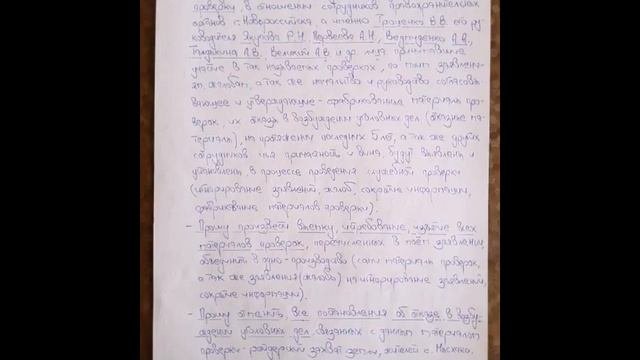 проверку, в отношении сотрудников правоохранительных
органов г. Новороссийска, а именно Гращенко В.В. его ру-
ководителя Якупова Р.Н.
Галушкина А.В. Великий А.В и др. лица принимавшие
участие в так называемых "проверках", по моим заявлени-
ям, жалобам, а так же начальство и руководство согласовы-
вающее и утверждающие - сфабрикованные материалы про-
верок, их отказы в возбуждении уголовных дел (отказные ма-
териалы), на протяжении последних 5 лет, а так же других
сотрудников чья причастность и вина, будут выявлены и
установлены в процессе проведения служебной проверки
(игнорирование заявлений, жалоб, сокрытие информации,
фабрикование материалов проверки).
- Прошу произвести выемку, истребование, изъятие всех
материалов проверок, перечисленных в моём заявлении,
объединить в одно-производство (сами материалы проверок,
а так же заявления (жалобы) на игнорирование заявлений,
сокрытие информации).
- Прошу отменить все постановления об отказе в возбу-
ждении уголовных дел, связанных с данным материалом
проверки - рейдерский захват земли, жителей с. Мысхако.